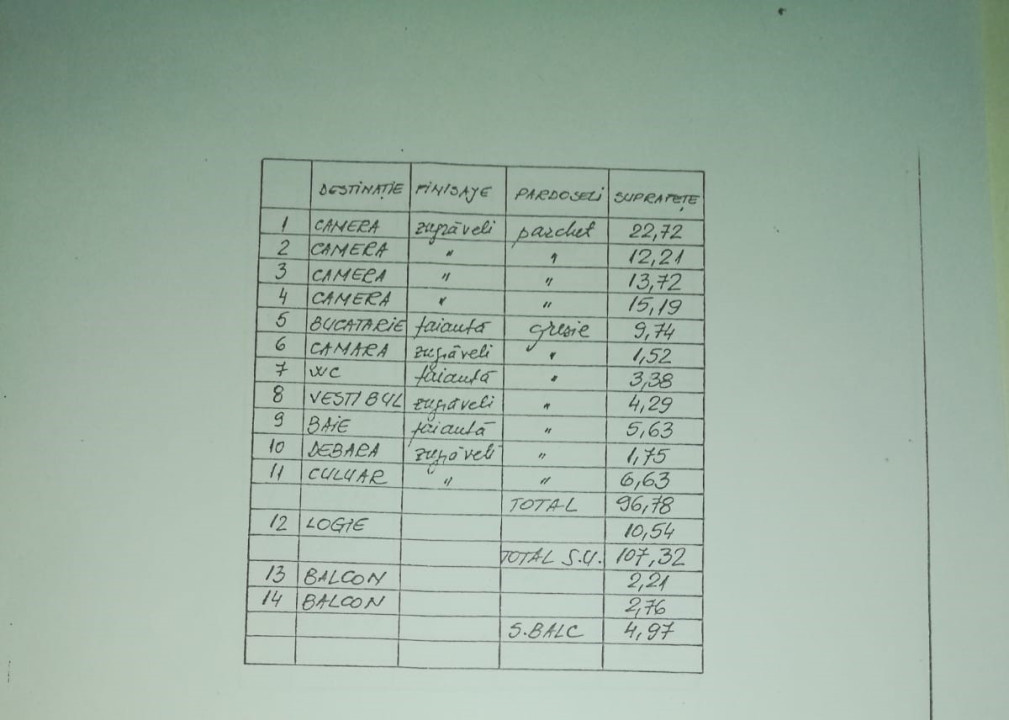 DESTINAȚIE FINISAJE PARDOSELI SUPRAFEȚE
1 CAMERA zugrăveli parchet 22,72
2 CAMERA " " 12,21
3 CAMERA " " 13,72
4 CAMERA " " 15,19
5 BUCATARIE faianță gresie 9,74
6 CAMARA zugrăveli " 1,52
7 WC faianță " 3,38
8 VESTIBUL zugrăveli " 4,29
9 BAIE faianță " 5,63
10 DEBARA zugrăveli " 1,75
11 CULUAR " " 6,63
TOTAL 96,78
12 LOGIE 10,54
TOTAL S.U. 107,32
13 BALCON 2,21
14 BALCON 2,76
S.BALC 4,97